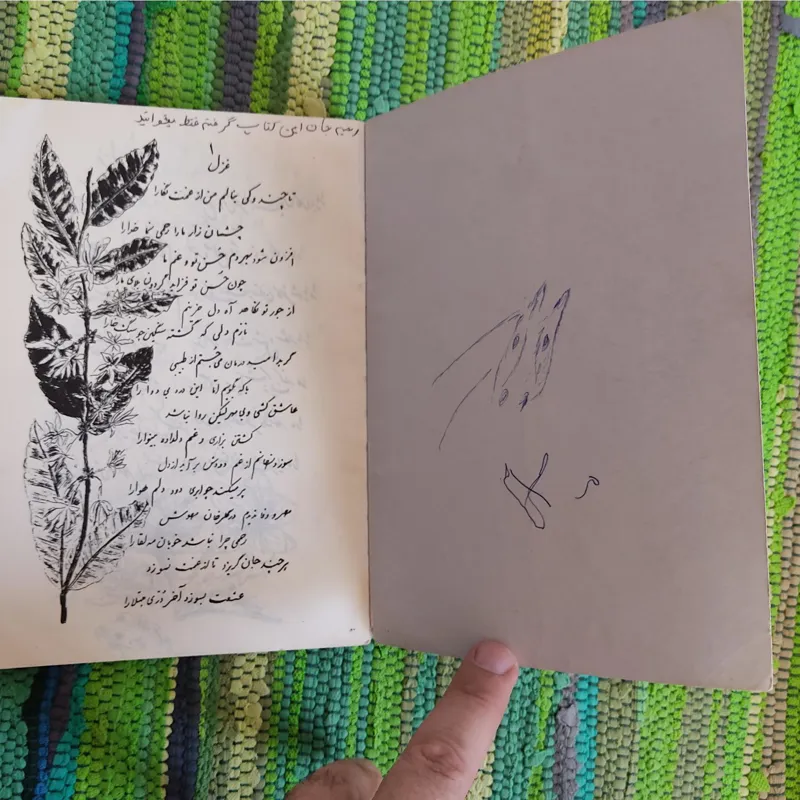 رحیم جان این کتاب گرفتم فقط بخوانید
غزل ۱
تا چند و کی بنالم من از غمت نگارا
چشمان زار ما را رحمی نما خدارا
افزون شود بهر دم حُسن تو و غم ما
چون حُسن تو فزاید گردون های ما را
از جور تو نگاهه آه دل حزینم
نازم دلی که گشته سنگین‌تر
گر بد امید درمان می‌جُستم از طبیبی
با که بگویم امّا این درد بی دوا را
عاشق کشی و بی مهر لیکن روا نباشد
کشتن بزاری و غم دلداده بینوا را
سوز دنهانم از غم دودش بر آید از دل
بر میکند جوابری دود دلم هوا را
مهر و وفا ندیدم در گلرخان مهوش
رحمی چرا نباشد خوبان مه لقا را
هر چند جان گریزد تا از غمت نسوزد
عشقت بسوزد آخر دُرّی مبتلا را